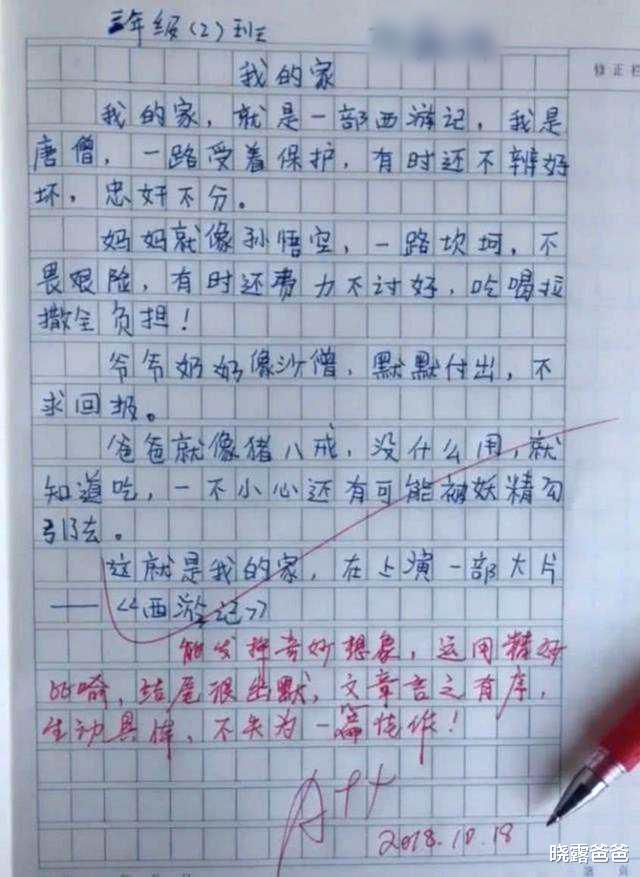 三年级（2）班
我的家
修正栏
我的家，就是一部西游记，我是
唐僧，一路受着保护，有时还不辨好
坏，忠奸不分。
妈妈就像孙悟空，一路坎坷，不
畏艰险，有时还费力不讨好，吃喝拉
撒全负担！
爷爷奶奶像沙僧，默默付出，不
求回报。
爸爸就像猪八戒，没什么用，就
知道吃，一不小心还有可能被妖精勾
引了去。
这就是我的家，在上演一部大片
——《西游记》
能发挥奇妙想象，运用精妙
比喻，结尾很幽默，文章言之有序，
生动具体，不失为一篇佳作！
A++
2018.10.18
晓露爸爸